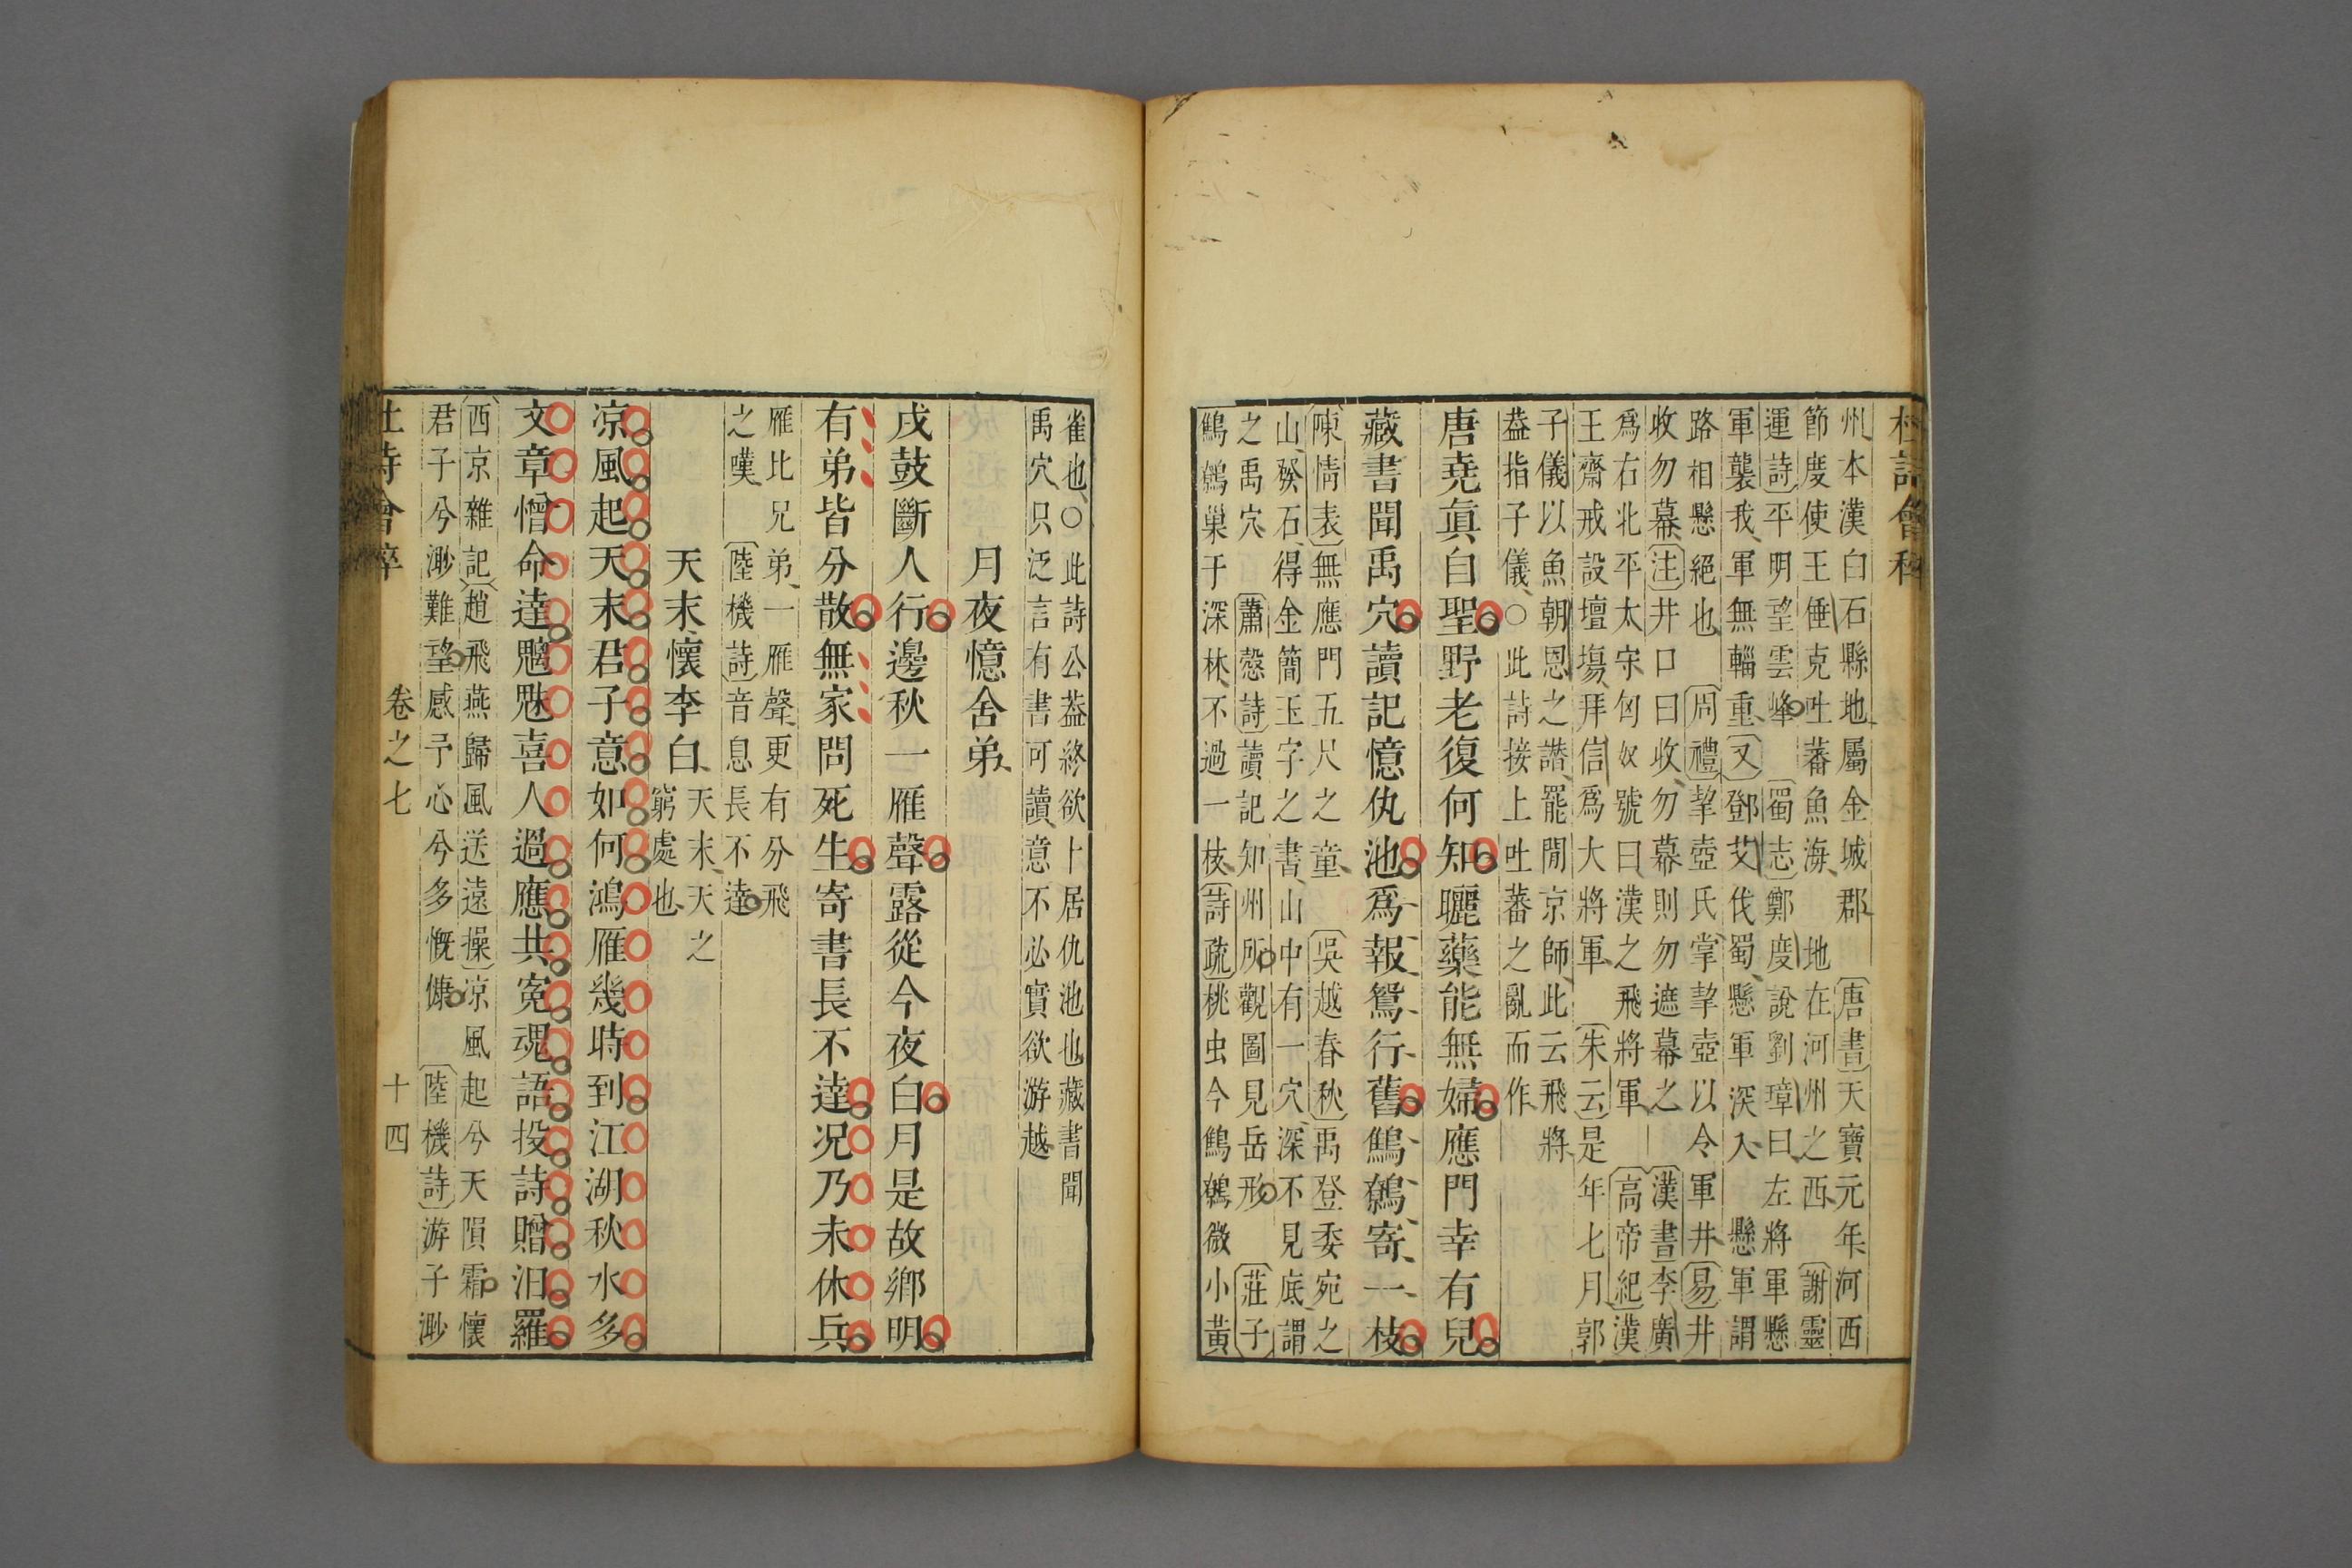 杜詩會稡
州本漢白石縣地屬金城郡〔唐書〕天寶元年河西
節度使王倕克吐蕃魚海地在河州之西〔謝靈
運詩〕平明望雲峰〔蜀志〕鄭度說劉璋曰左將軍懸
軍襲我軍無輜重〔又〕鄧艾伐蜀懸軍深入懸軍謂
路相懸絕也〔周禮〕挈壺氏掌挈壺以令軍井〔易〕井
收勿幕〔注〕井口曰收勿幕則勿遮幕之〔漢書〕李廣
爲右北平太守匈奴號曰漢之飛將軍〔高帝紀〕漢
王齋戒設壇塲拜信爲大將軍〔朱云〕是年七月郭
子儀以魚朝恩之譖罷閒京師此云飛將
葢指子儀○此詩接上吐蕃之亂而作
唐堯眞自聖野老復何知曬藥能無婦應門幸有兒
藏書聞禹穴讀記憶仇池爲報鴛行舊鷦鷯寄一枝
〔陳情表〕無應門五尺之童〔吳越春秋〕禹登委宛之
山𤼵石得金簡玉字之書山中有一穴深不見底謂
之禹穴〔蕭慤詩〕讀記知州所觀圖見岳形〔莊子〕
鷦鷯巢于深林不過一枝〔詩疏〕桃虫今鷦鷯微小黃
雀也○此詩公葢終欲卜居仇池也藏書聞
禹穴只泛言有書可讀意不必實欲游越
月夜憶舍弟
戍鼓斷人行邊秋一雁聲露從今夜白月是故鄉明
有弟皆分散無家問死生寄書長不達况乃未休兵
雁比兄弟一雁聲更有分飛
之嘆〔陸機詩〕音息長不達
天末懷李白 天末天之
窮處也
凉風起天末君子意如何鴻雁幾時到江湖秋水多
文章憎命達魑魅喜人過應共寃魂語投詩贈汨羅
〔西京雜記〕趙飛燕歸風送遠操〔凉風起兮天隕霜懷
君子兮渺難望感予心兮多慨慷〔陸機詩〕游子渺
杜詩會稡 卷之七 十四